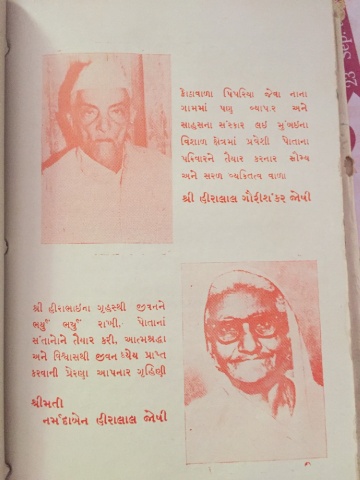 ઝાડાવાળા પિપરિયા જેવા નાના
ગામમાં પણ વ્યાપાર અને
સાહસના સંસ્કાર લઈ મુંબઈના
વિશાળ ક્ષેત્રમાં પ્રવેશી પોતાના
પરિવારને તૈયાર કરનાર સૌમ્ય
અને સરળ વ્યક્તિત્વ વાળા
શ્રી હીરાલાલ ગૌરીશંકર જોષી
શ્રી હીરાભાઈના ગૃહસ્થી જીવનને
ભર્યું ભર્યું રાખી, પોતાનાં
સંતાનોને તૈયાર કરી, આત્મશ્રદ્ધા
અને વિશ્વાસથી જીવન ધ્યેય પ્રાપ્ત
કરવાની પ્રેરણા આપનાર ગૃહિણી
શ્રીમતી
નર્મદાબેન હીરાલાલ જોષી
23 Sep.